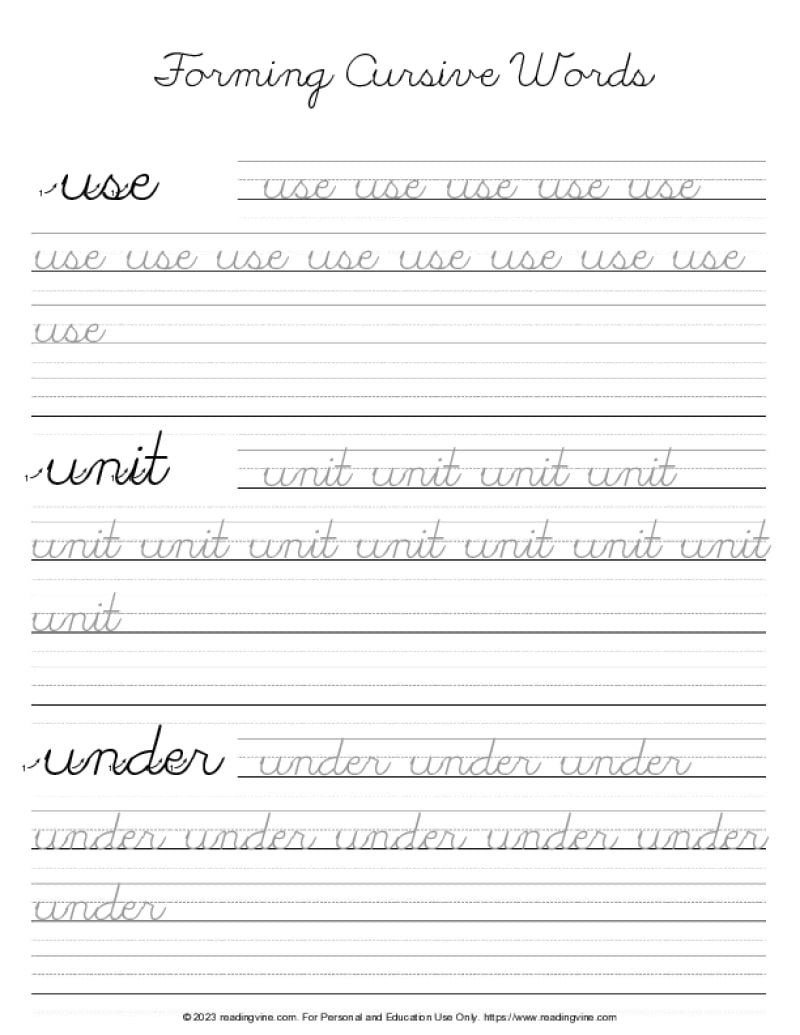 Forming Cursive Words
use use use use use use
use use use use use use use use
use
unit unit unit unit unit
unit unit unit unit unit unit unit
unit
under under under under
under under under under under
under
© 2023 readingvine.com. For Personal and Education Use Only. https://www.readingvine.com